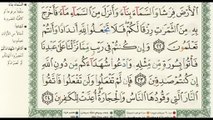 الْأَرْضَ فِرَاشًا وَالسَّمَاءَ بِنَاءً وَأَنزَلَ مِنَ السَّمَاءِ مَاءً فَأَخْرَجَ
بِهِ مِنَ الثَّمَرَاتِ رِزْقًا لَّكُمْ فَلَا تَجْعَلُوا لِلَّهِ أَندَادًا وَأَنتُمْ
تَعْلَمُونَ ٢٢ وَإِن كُنتُمْ فِي رَيْبٍ مِّمَّا نَزَّلْنَا عَلَىٰ عَبْدِنَا
فَأْتُوا بِسُورَةٍ مِّن مِّثْلِهِ وَادْعُوا شُهَدَاءَكُم مِّن دُونِ اللَّهِ
إِن كُنتُمْ صَادِقِينَ ٢٣ فَإِن لَّمْ تَفْعَلُوا وَلَن تَفْعَلُوا فَاتَّقُوا
النَّارَ الَّتِي وَقُودُهَا النَّاسُ وَالْحِجَارَةُ أُعِدَّتْ لِلْكَافِرِينَ ٢٤